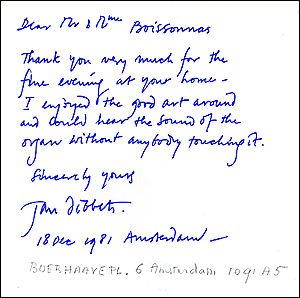 Dear Mr & Mme Boissonnas
Thank you very much for the
fine evening at your home –
I enjoyed the good art around
and could hear the sound of the
organ without anybody touching it.
Sincerely yours
Jan Dibbets.
18 Dec 1981 Amsterdam –
BOERHAAVEPL. 6 Amsterdam 1091 AS